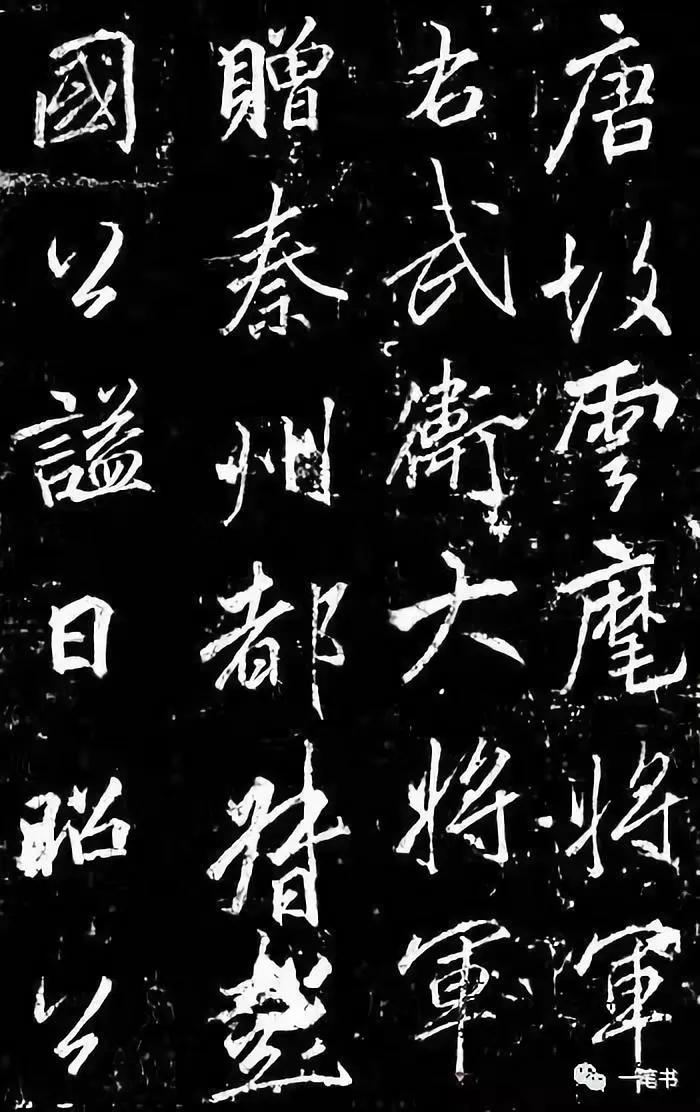 唐故雲麾將軍
右武衛大將軍
贈秦州都督彭
國公謚曰昭公
一笔书